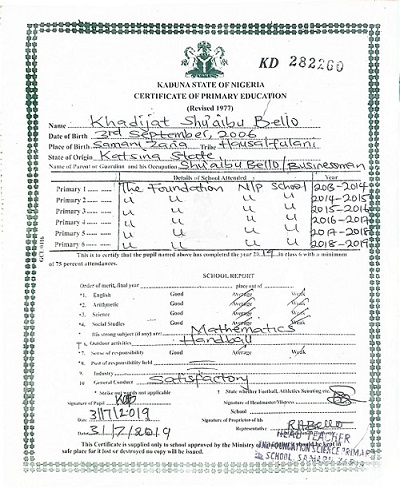 KD 282260
KADUNA STATE OF NIGERIA
CERTIFICATE OF PRIMARY EDUCATION
(Revised 1977)
Name Khadijat Shu'aibu Bello
Date of Birth 3rd September, 2006
Place of Birth Samaru Zaria Tribe Hausa/fulani
State of Origin Katsina State
Name of Parent or Guardian and his Occupation Shu'aibu Bello/Businessman
Details of School Attended Year
Primary 1 The Foundation N/P School 2013-2014
Primary 2 u u u u 2014-2015
Primary 3 u u u u 2015-2016
Primary 4 u u u u 2016-2017
Primary 5 u u u u 2017-2018
Primary 6 u u u u 2018-2019
This is to certify that the pupil named above has completed the year 2019 in class 6 with a minimum
of 75 percent attendances.
SCHOOL REPORT
Order of merit, final year place out of
*1. English Good Average Weak
*2. Arithmetic Good Average Weak
*3. Science Good Average Weak
*4. Social Studies Good Average Weak
* His strong subject (if any) are: Mathematics
Outdoor activities Handball
*7. Sense of responsibility Good Average Weak
*8. Post of responsibility held
9. Industry
10 General Conduct Satisfactory
* Strike out words not applicable
Signature of Pupil
Date 3/7/2019
Signature of Headmaster/Higness
School
Signature of Proprietor of his
Representative RABello
Date 31/7/2019
HEAD TEACHER
FOUNDATION SCIENCE PRIMARY
SCHOOL SAMARU ZARIA
This Certificate is supplied only to school approved by the Ministry of
safe place for it lost or destroyed no copy will be issued.